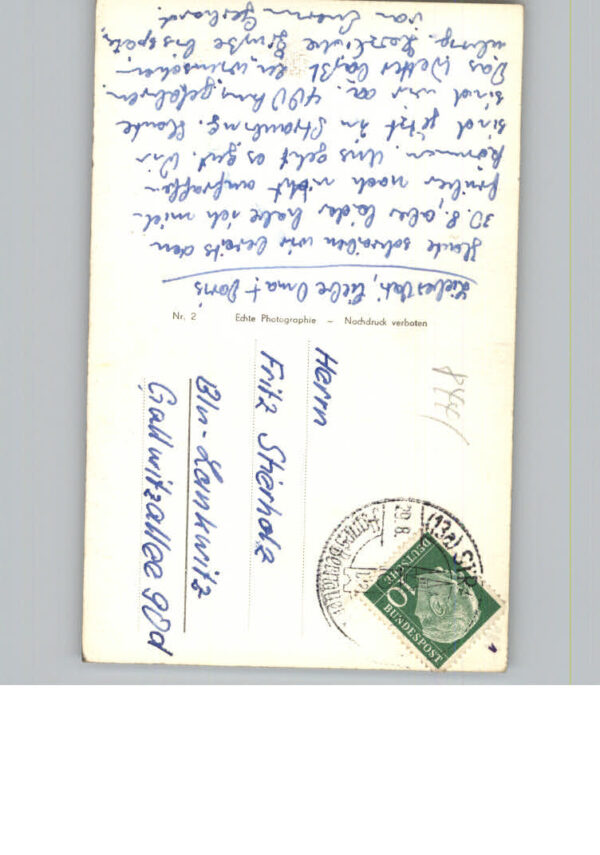 Lieber Vati, liebe Oma + Doris
Heute schreiben wir bereits den
30.8., aber leider habe ich mich
früher noch nicht aufraffen
können. Uns geht es gut. Wir
sind jetzt in Straubing. Heute
sind wir ca. 400 km gefahren.
Das Wetter läßt zu wünschen
übrig. Herzliche Grüße bis später
von Eurem Gerhard.
Nr. 2 Echte Photographie – Nachdruck verboten
Herrn
Fritz Stierholz
Bln-Lankwitz
Gallwitzallee 90d
(13a)
DEUTSCHE
BUNDESPOST
10